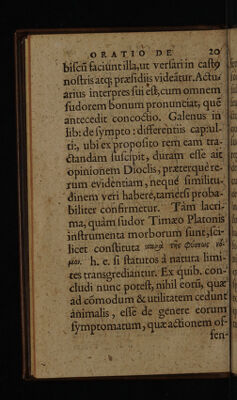 ORATIO DE 20
biscũ faciunt illa, ut versari in casto
nostris atq; præsidiis videãtur. Actu-
arius interpres sui est, cum omnem
sudorem bonum pronunciat, quẽ
antecedit concoctio. Galenus in
lib: de sympto: differentiis cap: ul-
ti:, ubi ex proposito rem eam tra-
ctandam suscipit, duram esse ait
opinionem Dioclis, præterque re-
rum evidentiam, neque similitu-
dinem veri habere, tametsi proba-
biliter confirmetur. Tàm lacri-
ma, quàm sudor Timæo Platonis
instrumenta morborum sunt, sci-
licet constituta παρὰ τῆς φύσεως νό-
μοι. h. e. si statutos á natura limi-
tes transgrediantur. Ex quib. con-
cludi nunc potest, nihil eorũ, quæ
ad cõmodum & utilitatem cedunt
animalis, esse de genere eorum
symptomatum, quæ actionem of-
fen-